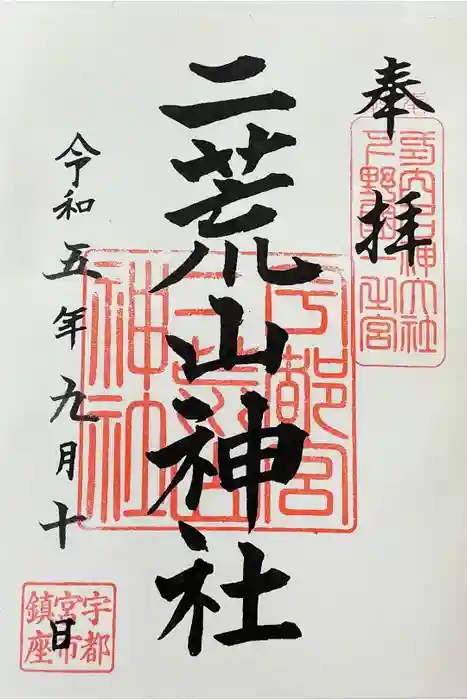 奉拝
式内名神大社
下野國一之宮
二荒山神社
宇都宮
二荒山
神社
令和五年九月十日
宇都
宮市
鎮座